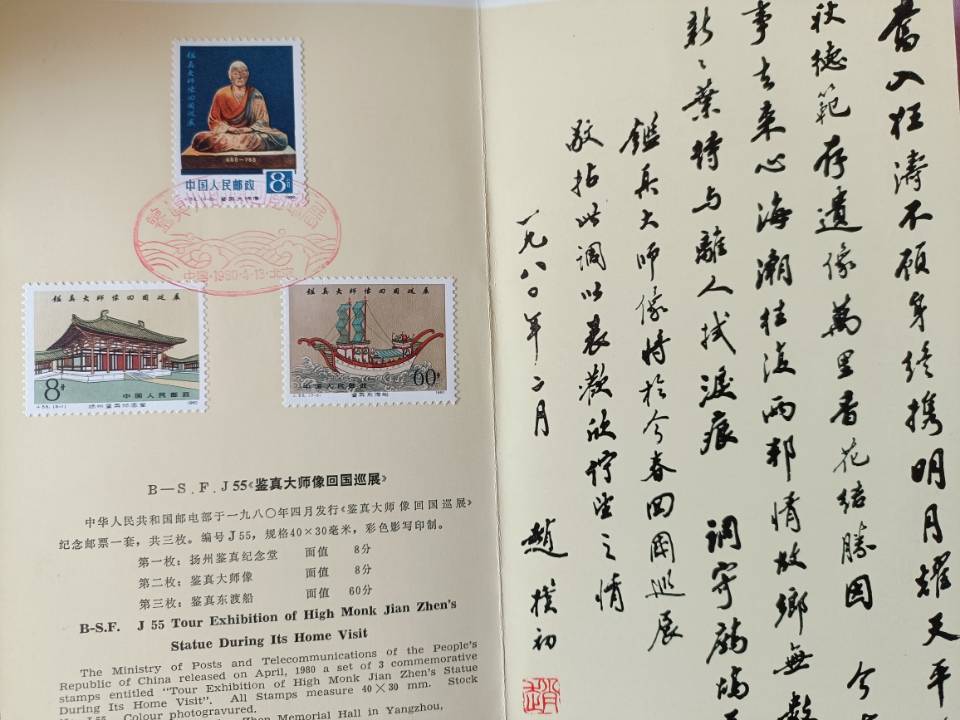 鑑真大师像回国巡展
688—763
中国人民邮政 8分
J.55.(3-2) 鉴真大师像 1980
中国·1980·4·13·北京
鑑真大师像回国巡展
8分
中国人民邮政
J.55.(3-1) 扬州鉴真纪念堂 1980
鑑真大师像回国巡展
中国人民邮政 60分
J.55.(3-3) 鉴真东渡船 1980
B—S.F.J55《鉴真大师像回国巡展》
中华人民共和国邮电部于一九八〇年四月发行《鉴真大师像回国巡展》
纪念邮票一套，共三枚。编号J55，规格40×30毫米，彩色影写印制。
第一枚：扬州鉴真纪念堂 面值 8分
第二枚：鉴真大师像 面值 8分
第三枚：鉴真东渡船 面值 60分
B-S.F. J 55 Tour Exhibition of High Monk Jian Zhen's
Statue During Its Home Visit
The Ministry of Posts and Telecommunications of the People's
Republic of China released on April, 1980 a set of 3 commemorative
stamps entitled "Tour Exhibition of High Monk Jian Zhen's Statue
During Its Home Visit". All Stamps measure 40×30 mm. Stock
No. J 55. Colour photogravured.
Zhen Memorial Hall in Yangzhou,
奮入狂濤不顧身終攜明月耀天平
秋德範存遺像萬里香花結勝因 今
事去來心海潮往復兩邦情故鄉無數
新〻葉待与離人拭淚痕 調寄鷓鴣
鑑真大师像将於今春回國巡展
敬拈此調以表歡欣佇望之情
一九八〇年二月 趙樸初